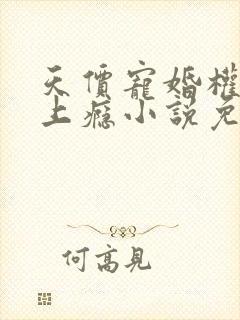 天價寵婚權
上癮小說免
何高見